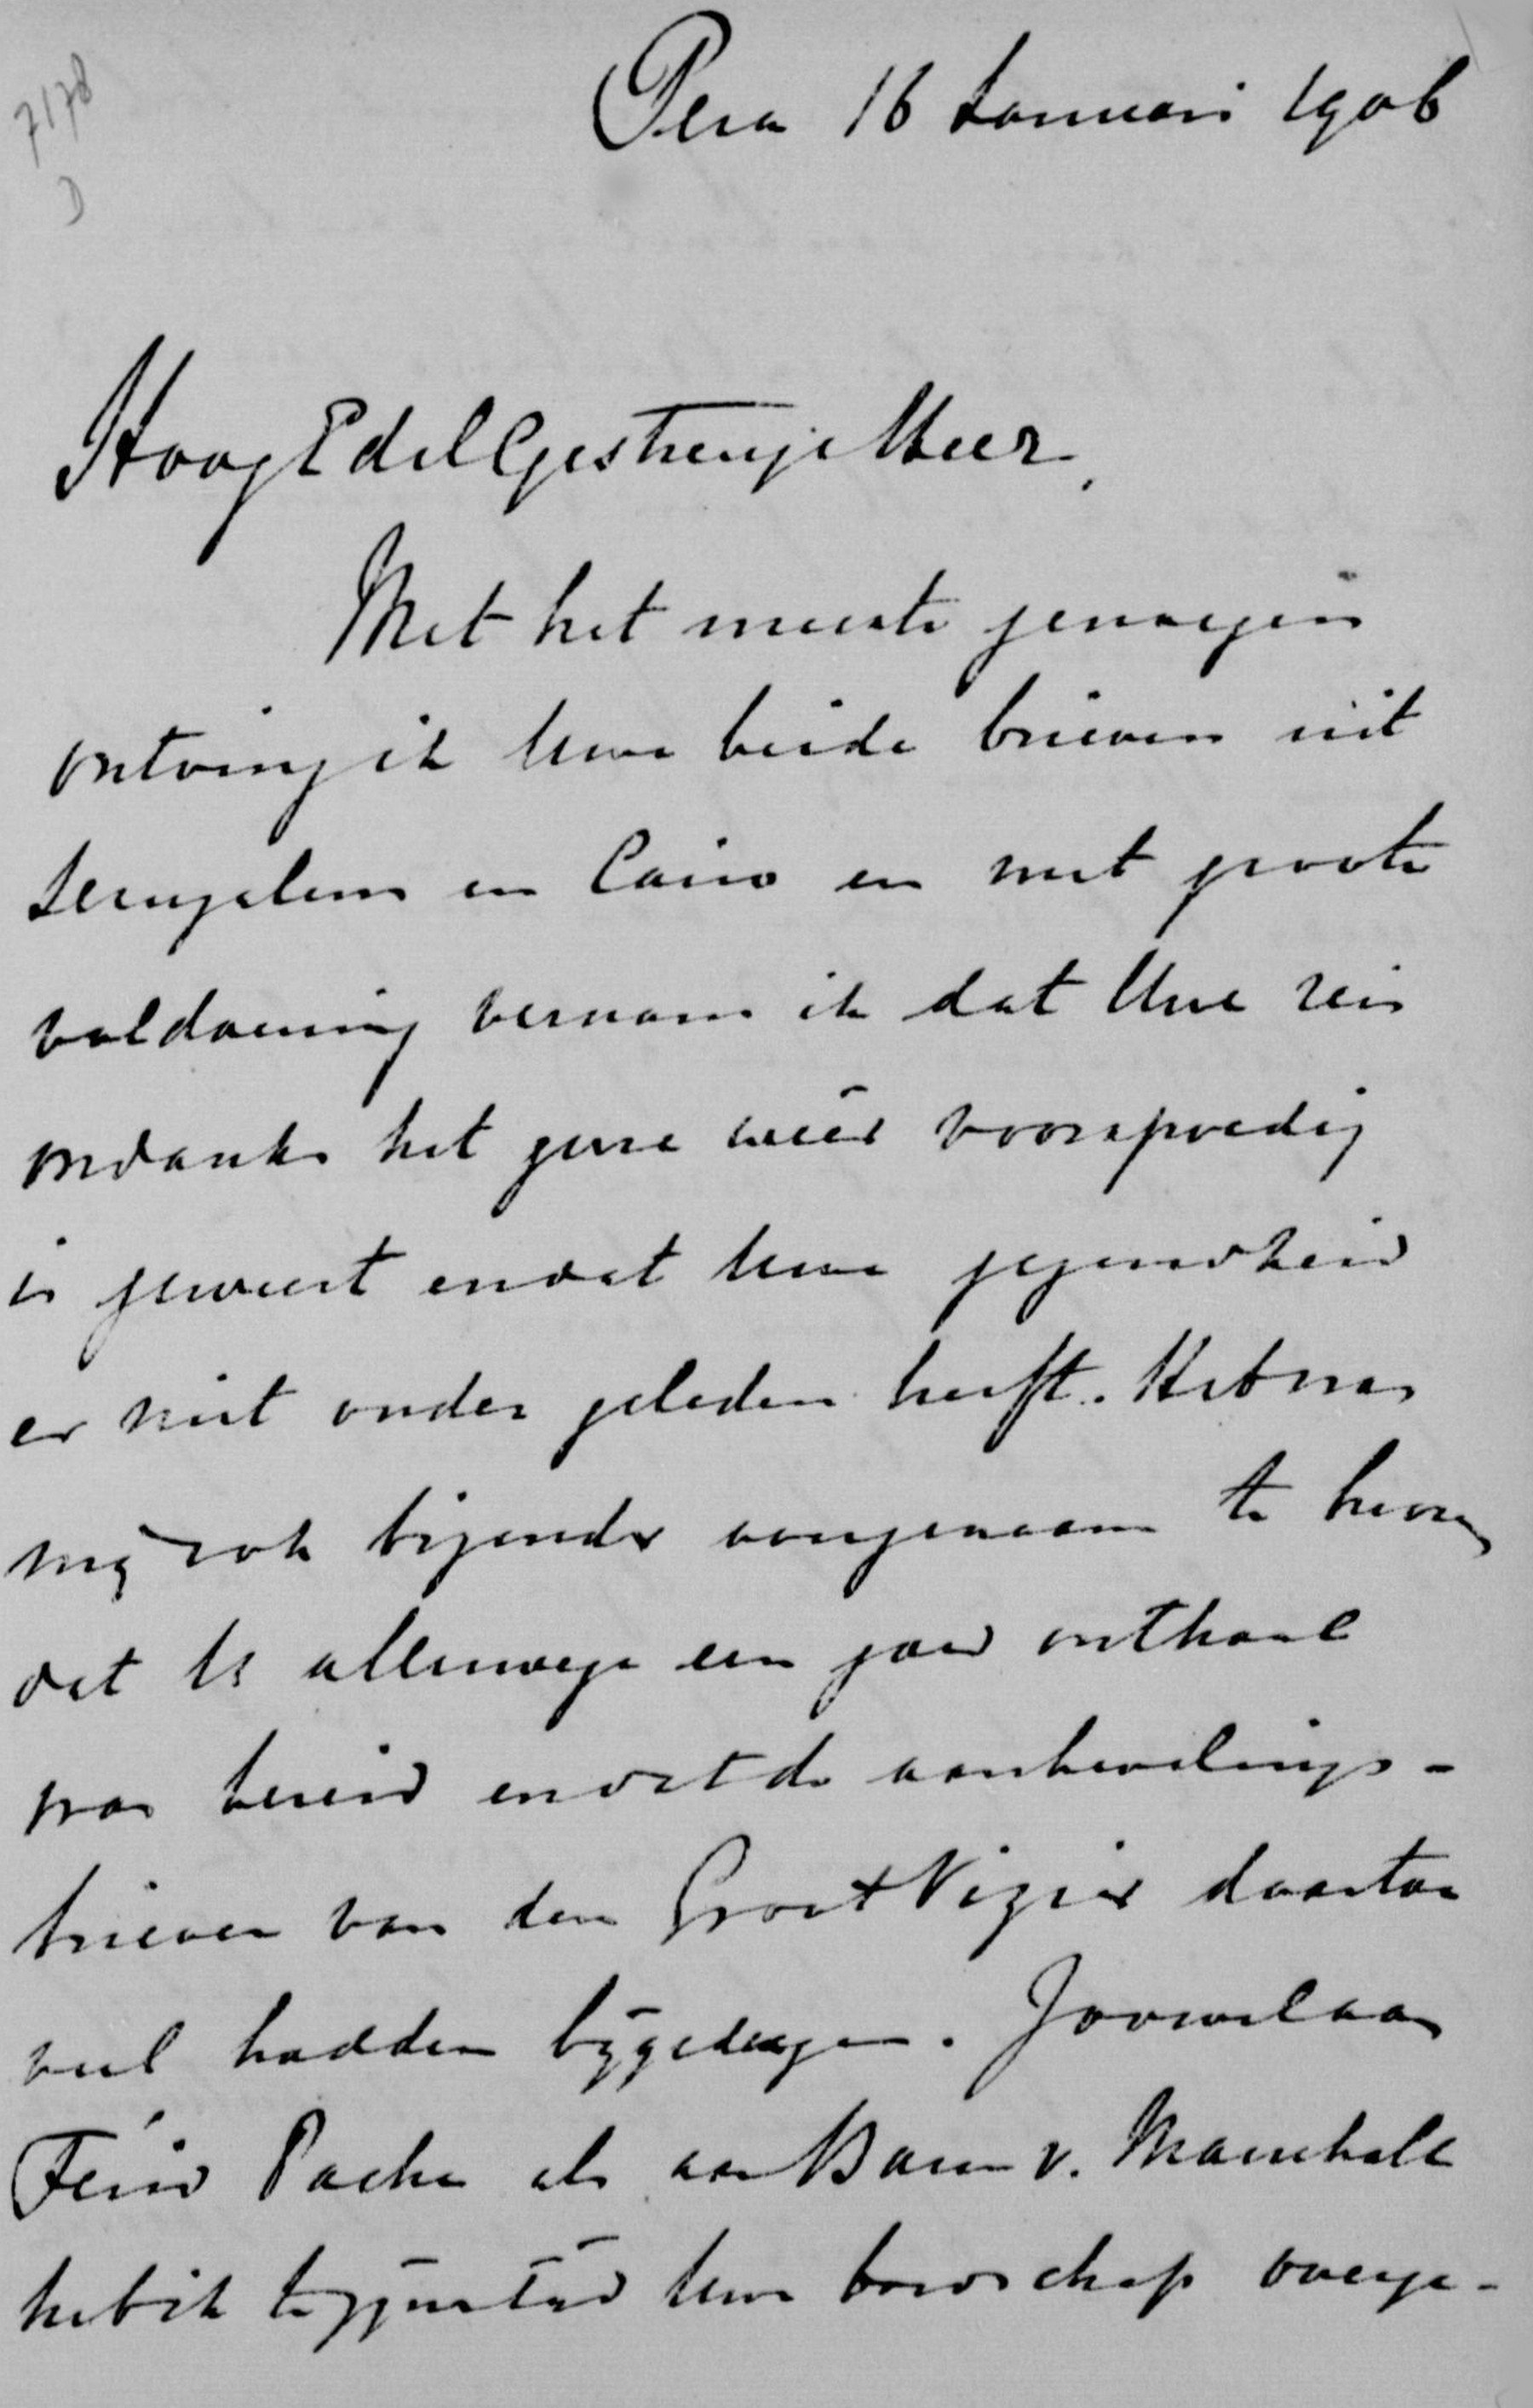 7178
D
Pera 16 Januari 1906
HoogEdelGestrenge Heer,
Met het meeste genoegen
ontving ik Uwe beide brieven uit
Jeruzalem en Cairo en met groote
voldoening vernam ik dat Uwe reis
ondanks het gure weêr voorspoedig
is geweest en dat Uwe gezondheid
er niet onder geleden heeft. Het was
mij ook bijzonder aangenaam te hooren
dat U allerwege een goed onthaal
was bereid en dat de aanbevelings-
brieven van den GrootVizier daartoe
veel hadden bijgedragen. Zoowel aan
Ferid Pacha als aan Baron v. Marschall
heb ik te zijner tijd Uwe boodschap overge-